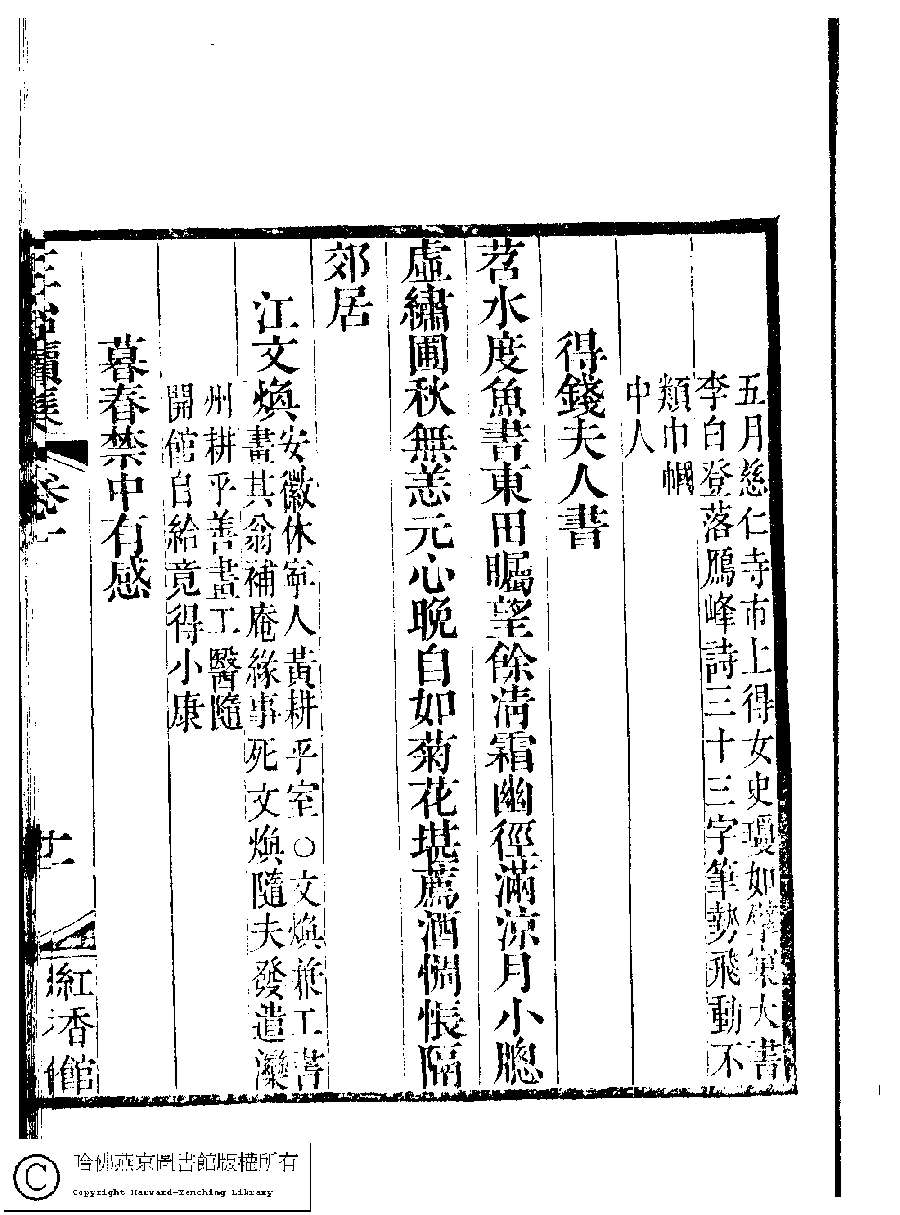 五月慈仁寺市上得女史瓊如擘窠大書
李白登落鴈峰詩三十三字筆勢飛動不
類巾幗
中人
得錢夫人書
苕水度魚書東田矚望餘淸霜幽徑滿涼月小牕
虛繡圃秋無恙元心晚自如菊花堪薦酒惆悵隔
郊居
江文煥
安徽休寧人黃耕乎室○文煥兼工書
畫其翁補庵緣事死文煥隨夫發遣灤
州耕乎善畫工醫隨
開館自給竟得小康
暮春禁中有感
續集 卷十
廿一
紅香館
哈佛燕京圖書館版權所有
Copyright Harvard-Yenching Library